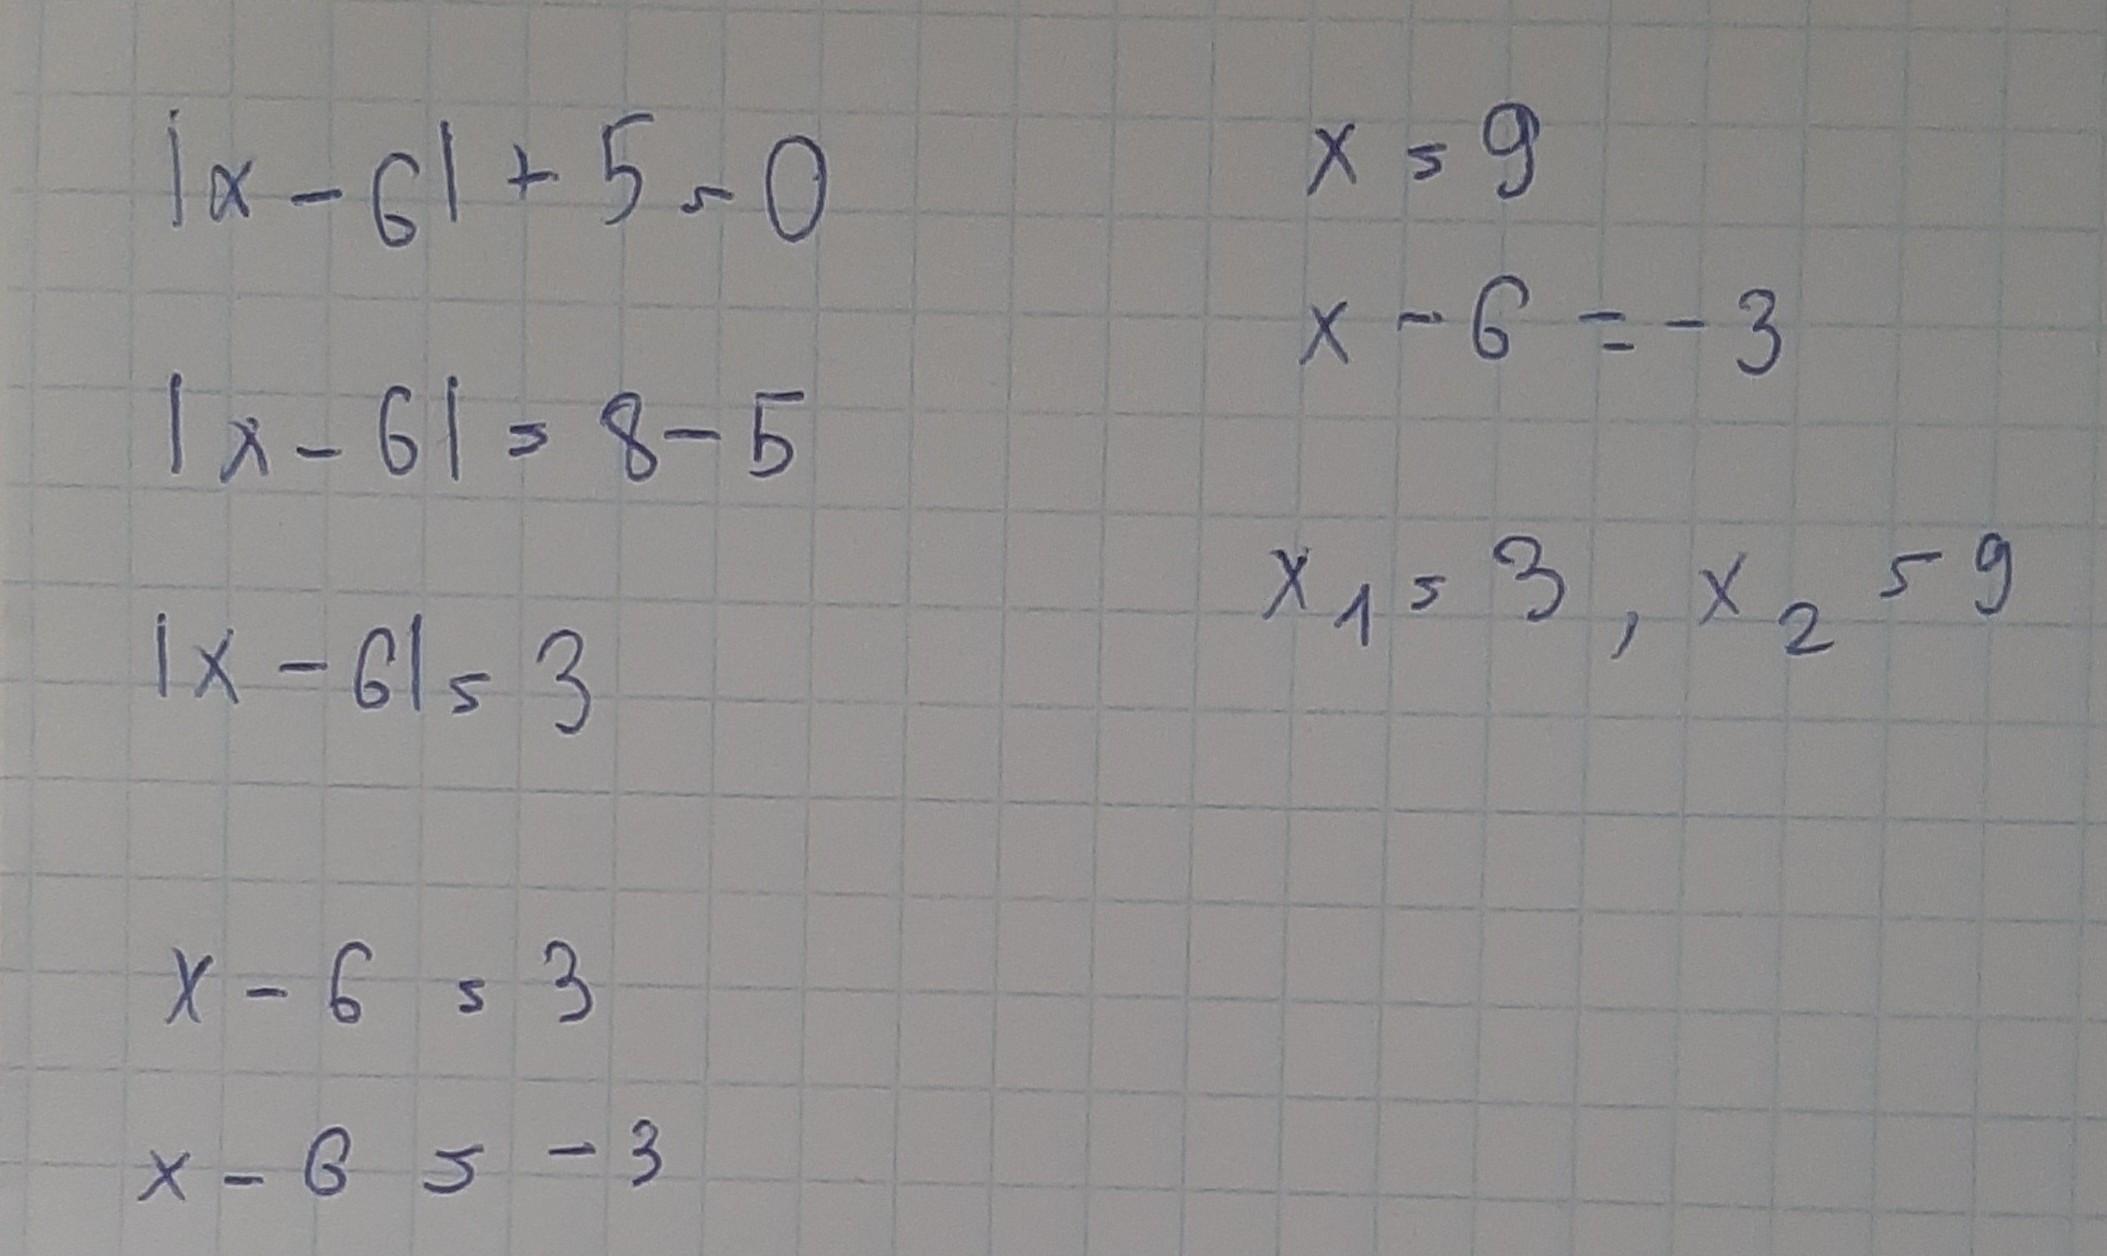 |x - 6| + 5 = 0
|x - 6| = 8 - 5
|x - 6| = 3
x - 6 = 3
x - 6 = -3
x = 9
x - 6 = -3
x₁ = 3, x₂ = 9